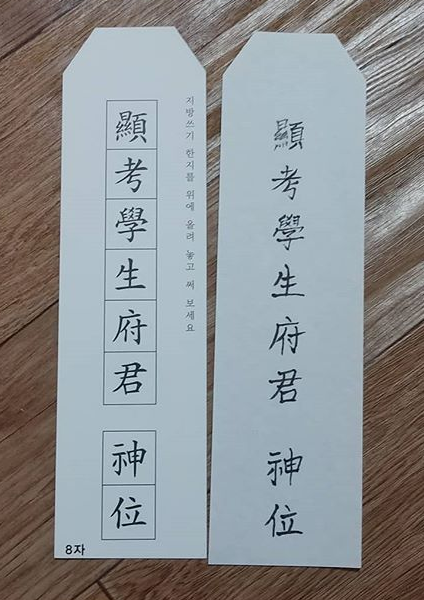 顯考學生府君 神位
지방쓰기 한지를 위에 올려 놓고 써 보세요
8자
顯考學生府君 神位